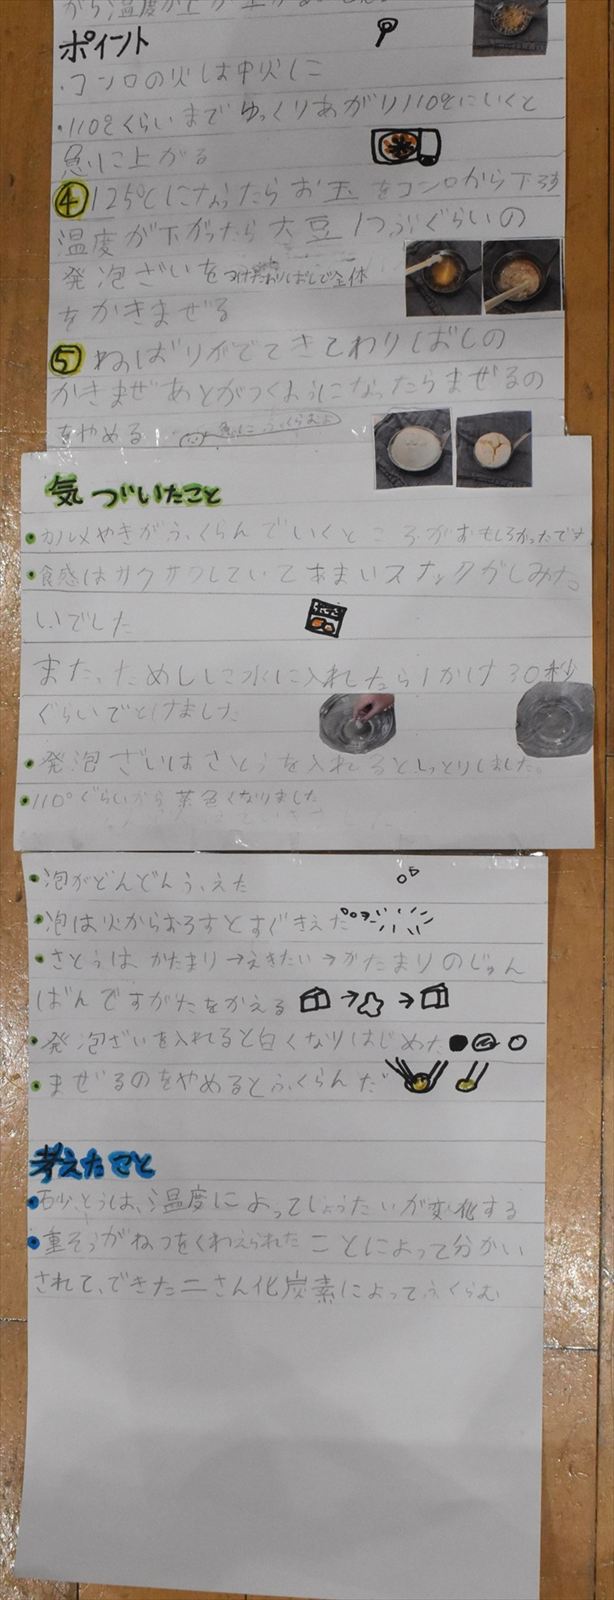 から温度が上が
ポイント
・コンロの火は中火に
・110℃くらいまでゆっくりあがり110℃にいくと
急に上がる
④125℃になったらお玉をコンロから下ろす
温度が下がったら大豆1つぶぐらいの
発泡ざいをつけたわりばしで全体
をかきまぜる
⑤ねばりがでてきてわりばしの
かきまぜあとがつくようになったらまぜるの
をやめる 急にふくらむよ
気づいたこと
・カルメやきがふくらんでいくところがおもしろかったです
・食感はサクサクしていてあまいスナックがしみた
いでした
また、ためしに水に入れたら1かけ30秒
ぐらいでとけました
・発泡ざいはさとうを入れるとしっとりしました。
・110°ぐらいから茶色くなりました
・泡がどんどんふえた
・泡は火からおろすとすぐきえた
・さとうは、かたまり→えきたい→かたまりのじゅん
ばんですがたをかえる
・発泡ざいを入れると白くなりはじめた
・まぜるのをやめるとふくらんだ
考えたこと
・砂とうは、温度によってじょうたいが変化する
・重そうがねつをくわえられたことによって分かい
されて、できた二さん化炭素によってふくらむ